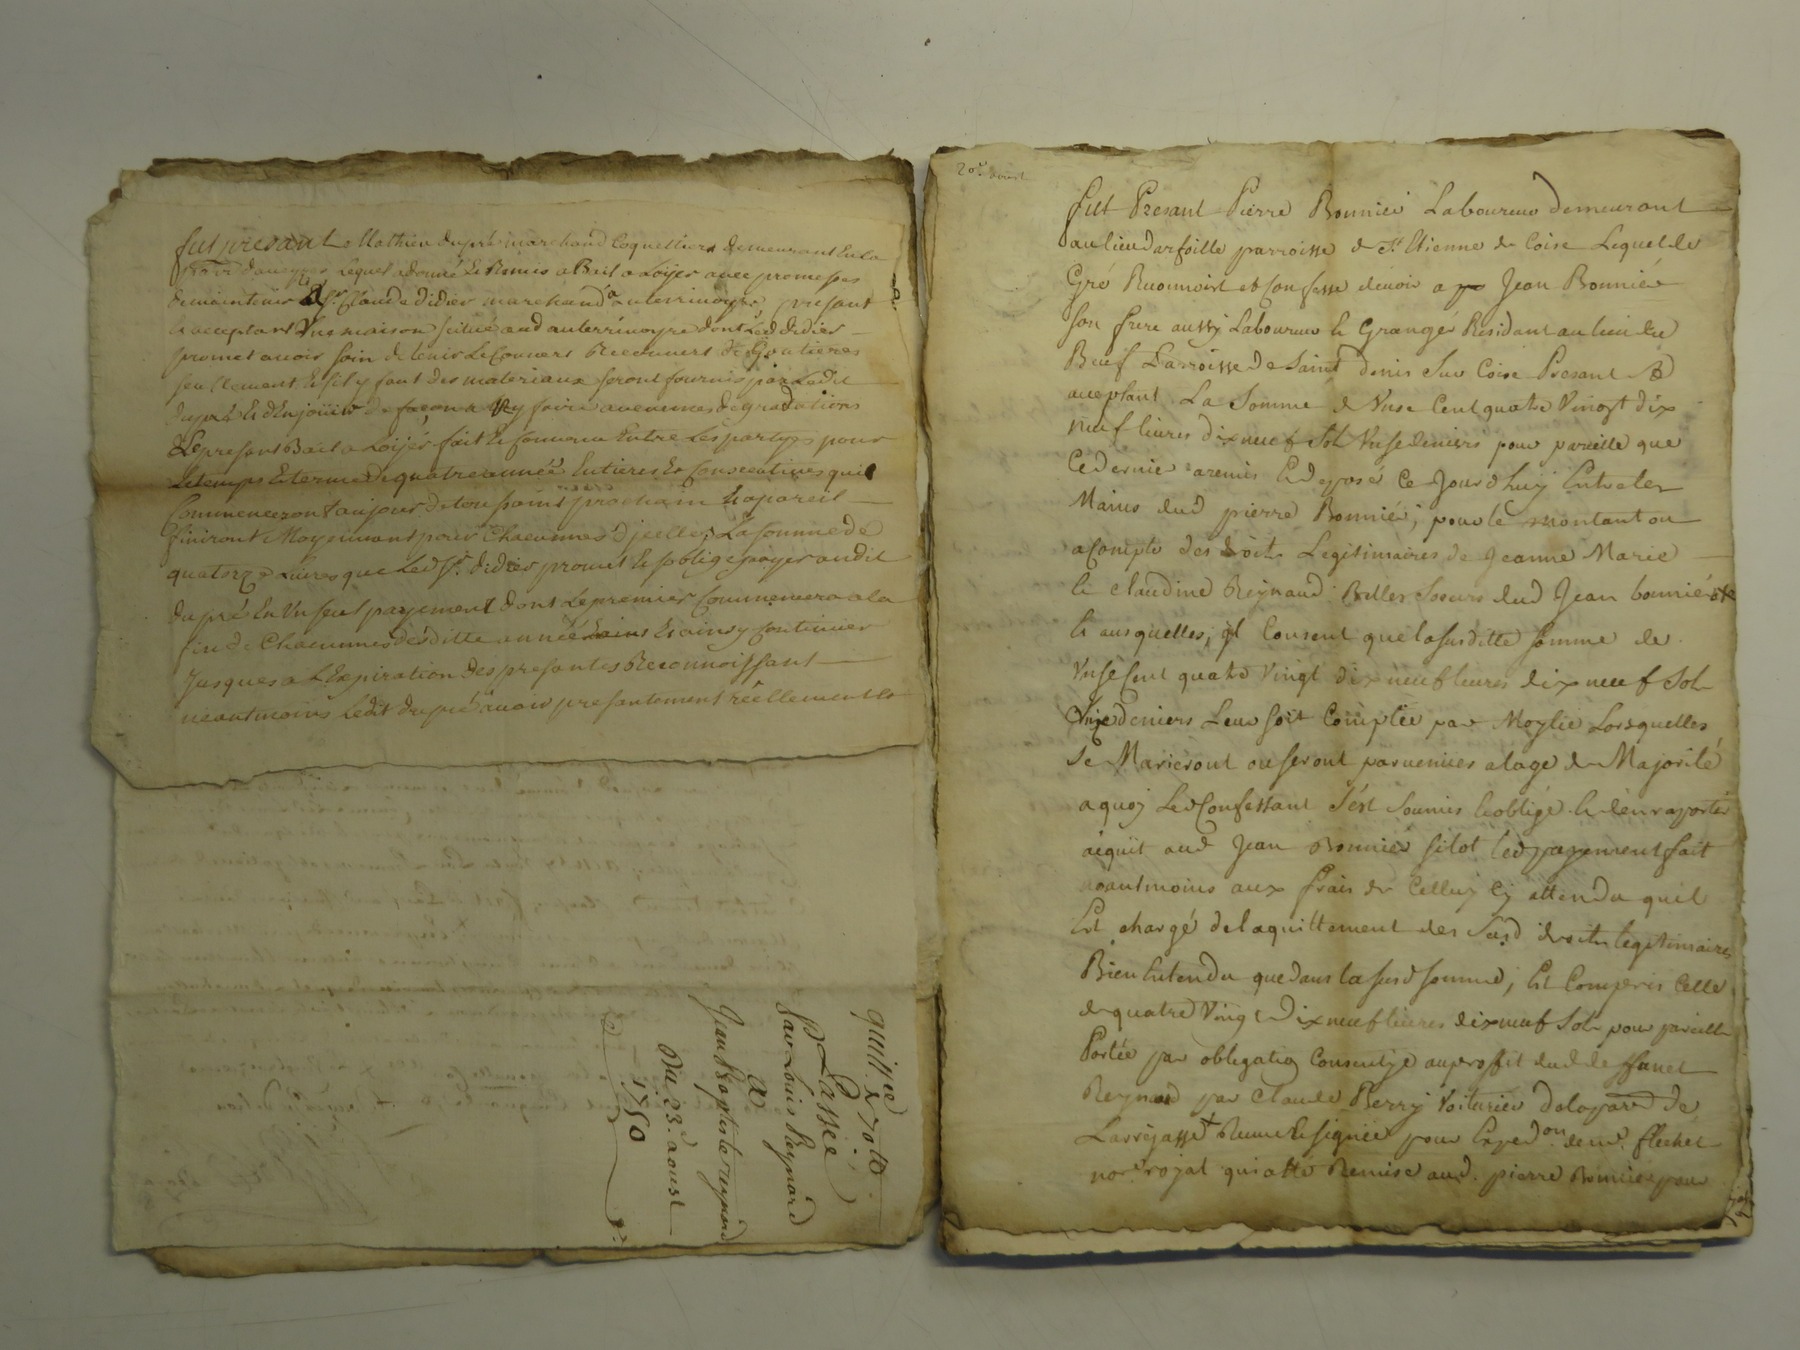 fut presant Mathieu dupré marchand Coquettier demeurant En la
parr. daveyzes Lequel a donné Et Remis a Bail a Loÿer avec promesses
de maintenir a Sr. Claude didier marchand a Luterrinoyre presant
Et acceptant Une maison scitué aud Luterrinoyre dont Led didier
promet avoir soin de tenir Le Couvert Recouvert de Goutieres
seullement Et sil y faut des materiaux seront fournis par Ledit
dupré Et d'En joüir de façon a Ny faire aucunnes degradations
Le present Bail a Loÿer fait Et Convenu Entre Les partyes pour
Le temps Et terme de quatre année Entieres Et Consecutives qui
Commenceront au jour de tou saint prochain Et a pareil
finiront Moyennant pour Chacunnes D'jcelles La somme de
quatorze Livres que Led Sr. didier promet Et soblige payer audit
dupré En Un seul payement dont Le premier Commencera a la
fin de Chacunnes desditte année Et ainsy Continuer
Jusques a L'Expiration des presantes Reconnoissant
neantmoins Ledit dupré avoir presantement réellement
quittce
de 70 lt.
Passée
Par Louis Reynard
A
Jean Baptiste reynard
Du. 23.e aoust
1750
20e aoust
fut Presant Pierre Bonnier Laboureur demeurant
au lieu darfoille parroisse de St. Etienne de Coise Lequel de
Gré Reconnoist et Confesse devoir a Jean Bonnier
son frere aussy Laboureur et Granger Residant au lieu du
Beuf Parroisse de Saint denis Sur Coise Presant Et
acceptant La Somme de Unse Cent quatre Vingt dix
neuf livres dix neuf Sols Unse deniers pour pareille que
Ce dernier a remis Et deposé Ce Jourd'huy Entre les
Mains dud pierre Bonnier, pour le montant ou
a Compte des droits Legitimaires de Jeanne Marie
Et claudine Reynaud Belles Soeurs dud Jean bonnier
Et ausquelles, il Consent que la susditte somme de
Unse Cent quatre Vingt dix neuf livres dix neuf Sols
Unze deniers Leur soit Comptée par Moytie Lorsquelles
Se Marieront ou seront parvenues a lage de Majorité
a quoy Led Confessant S'est soumis Et obligé Et d'en raporter
acquit aud Jean Bonnier sitot led payement fait
neantmoins aux frais de Celluy Cy attendu quil
Est chargé de laquittement des Susd droits legitimaires
Bien Entendu que dans la susd somme, Est Compris Celle
de quatre Vingt Dix neuf livres dix neuf Sols pour pareille
Portée par obligation Consentye au proffit dud de ffunct
Reynaud par Claude Berry Voiturier de la parr. de
Larrajasse Reçue Et signée pour Exped.on de Me. flechet
nore. royal qui a été Remise aud. pierre Bonnier pour